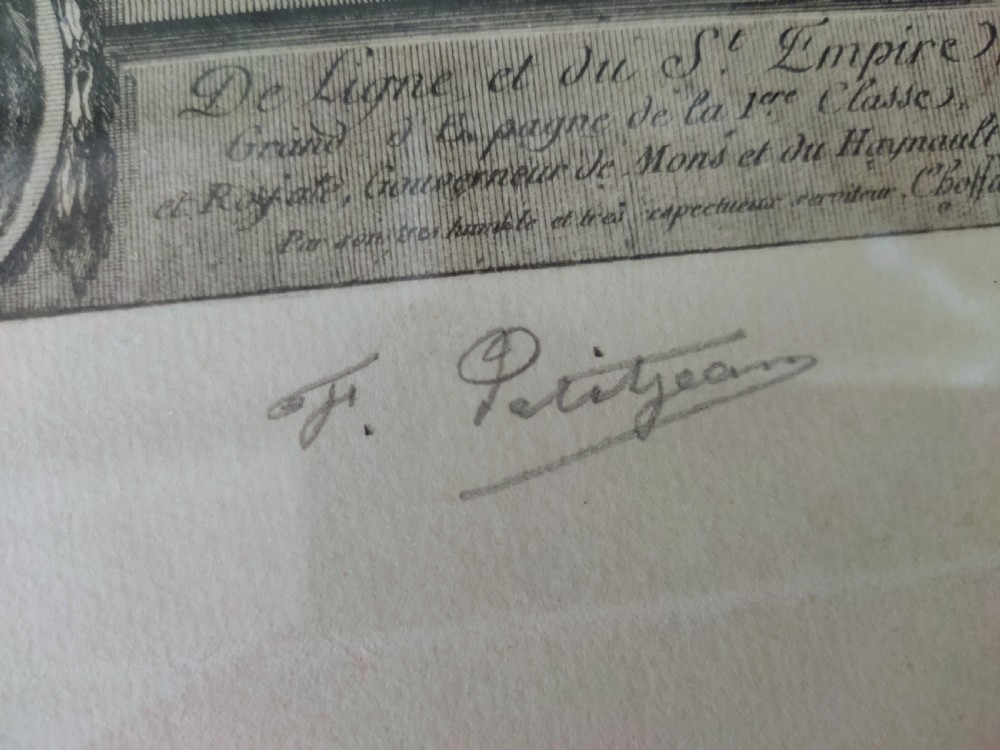 De Ligne et du S.t Empire,
Grand d'Espagne de la 1ere Classe,
et Royale, Gouverneur de Mons et du Haynault
Par son tres humble et tres respectueux serviteur. Choffa
F. Petitjean